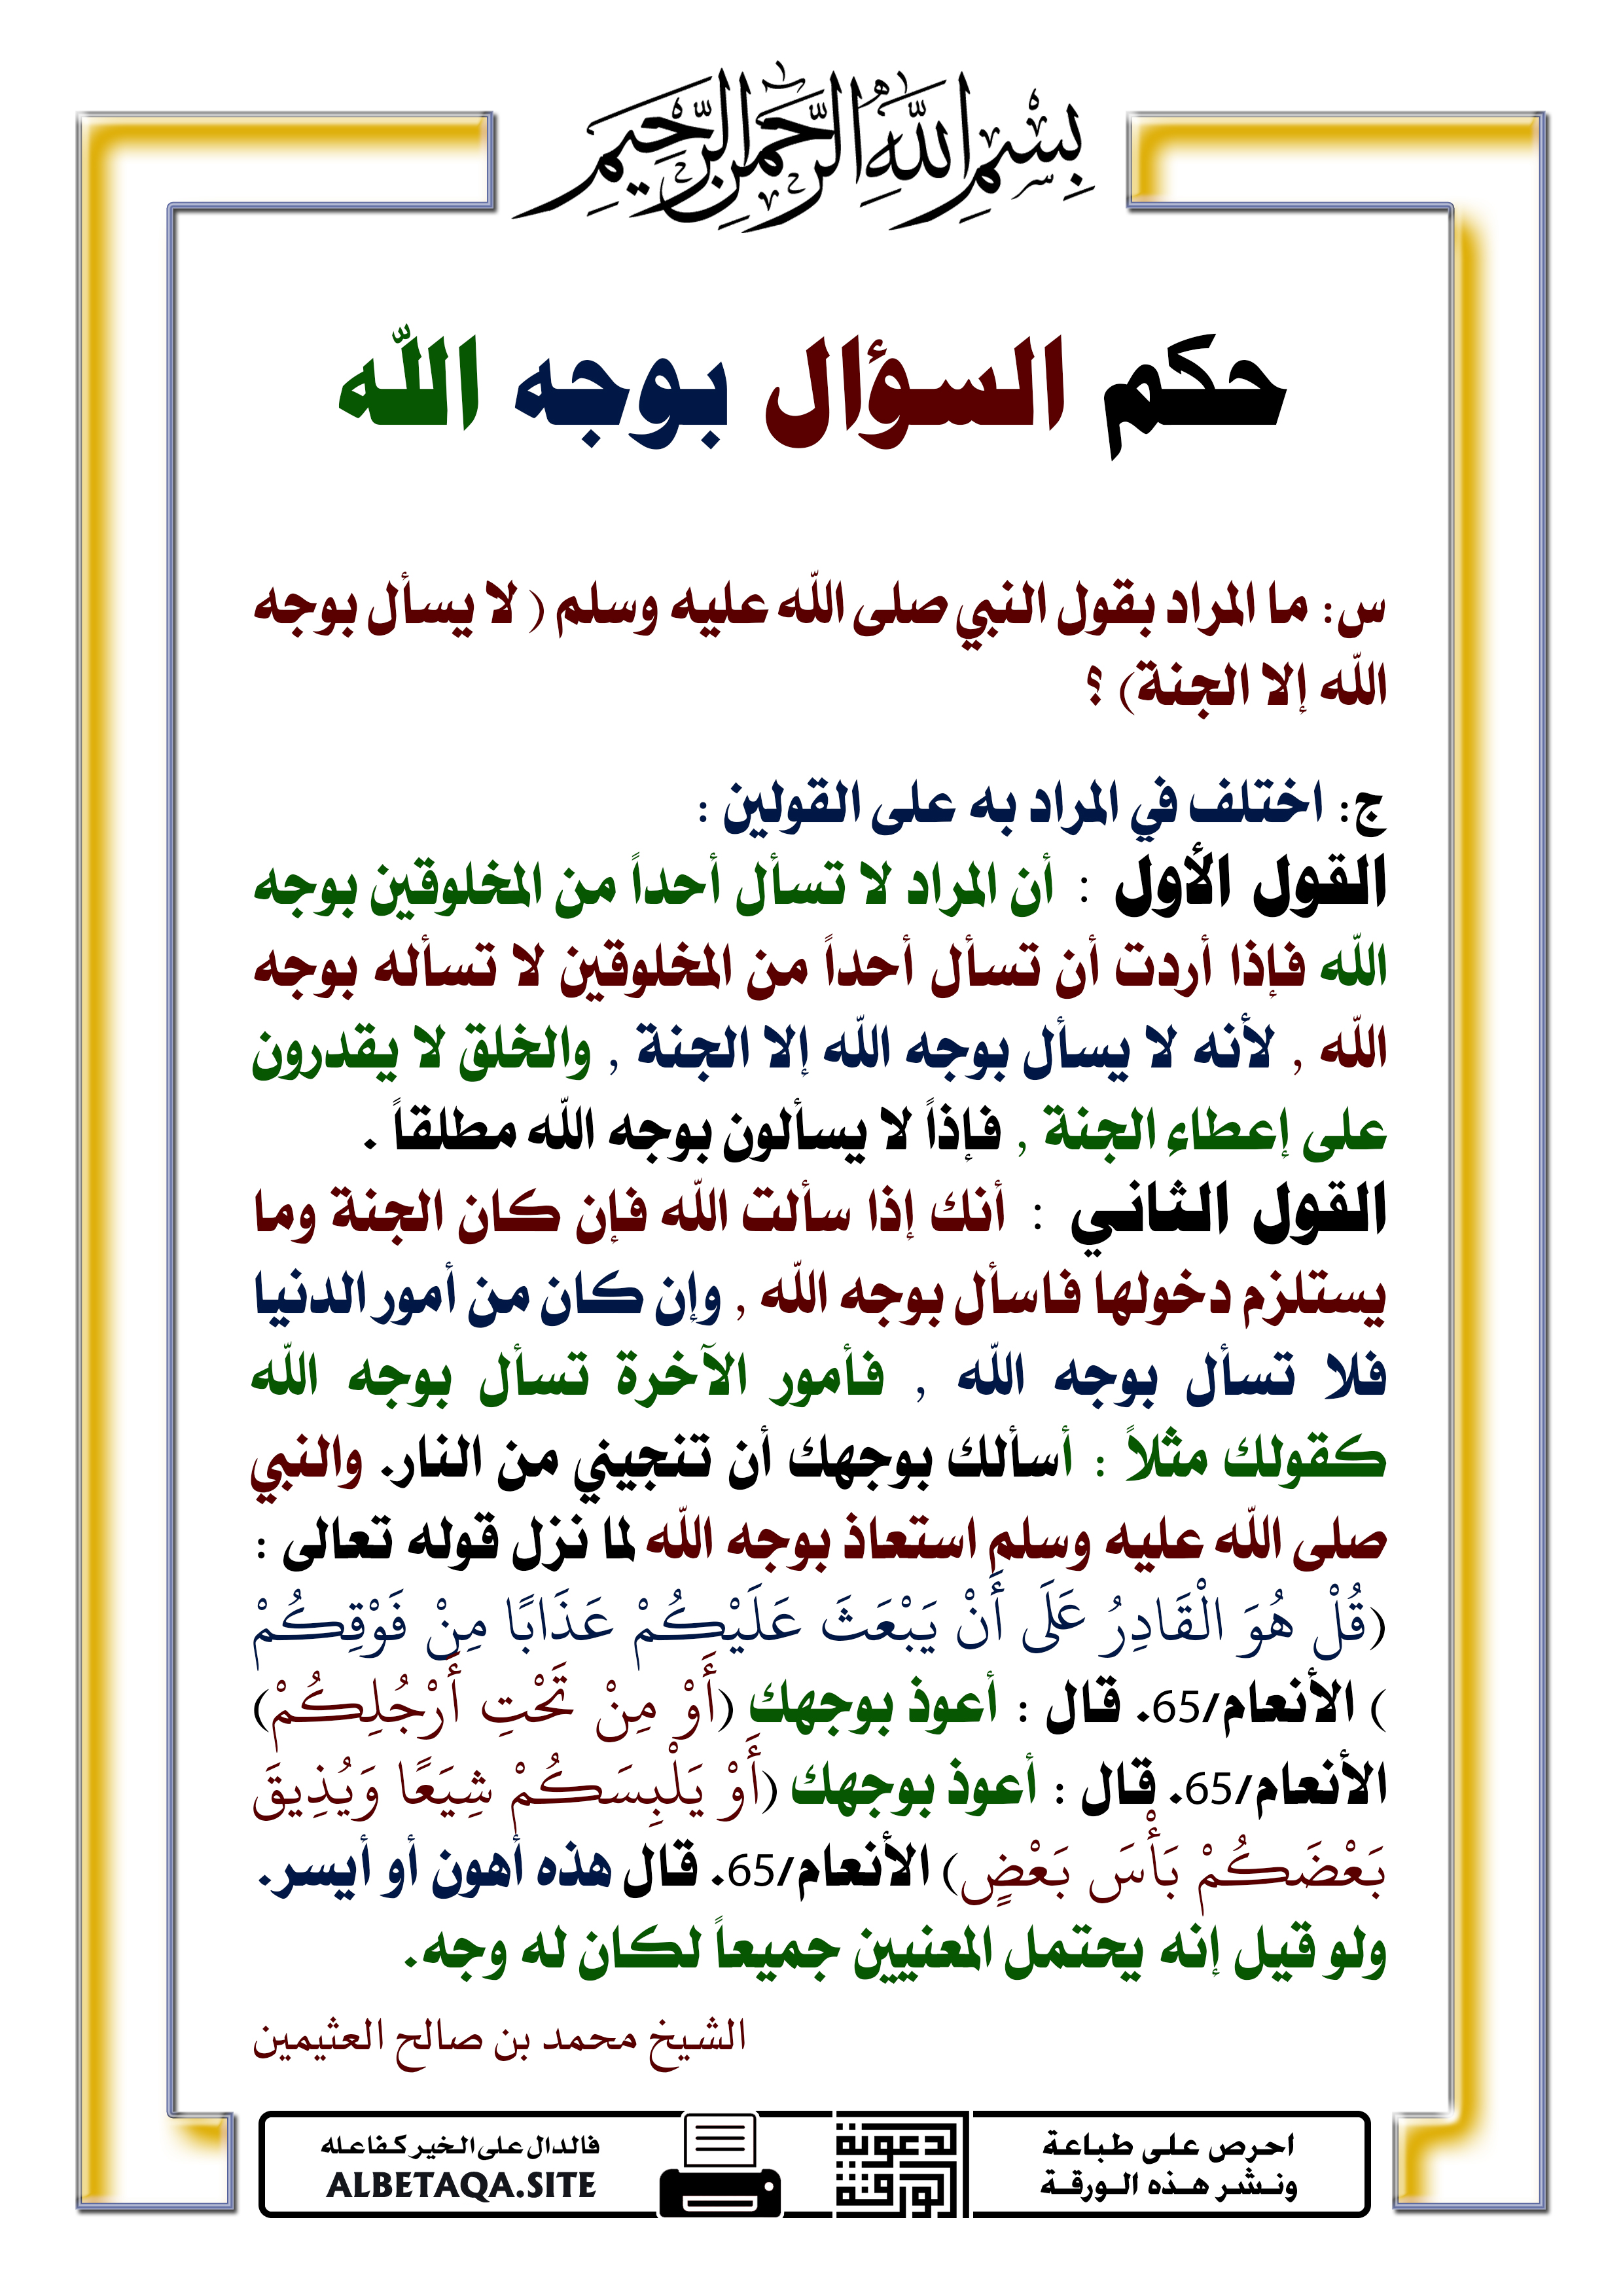 بِسْمِ اللَّهِ الرَّحْمَٰنِ الرَّحِيمِ
حكم السؤال بوجه الله
س: ما المراد بقول النبي صلى الله عليه وسلم ( لا يسأل بوجه
الله إلا الجنة) ؟
ج: اختلف في المراد به على القولين :
القول الأول : أن المراد لا تسأل أحداً من المخلوقين بوجه
الله فإذا أردت أن تسأل أحداً من المخلوقين لا تسأله بوجه
الله , لأنه لا يسأل بوجه الله إلا الجنة , والخلق لا يقدرون
على إعطاء الجنة , فإذاً لا يسألون بوجه الله مطلقاً .
القول الثاني : أنك إذا سألت الله فإن كان الجنة وما
يستلزم دخولها فاسأل بوجه الله , وإن كان من أمور الدنيا
فلا تسأل بوجه الله , فأمور الآخرة تسأل بوجه الله
كقولك مثلاً : أسألك بوجهك أن تنجيني من النار. والنبي
صلى الله عليه وسلم استعاذ بوجه الله لما نزل قوله تعالى :
(قُلْ هُوَ الْقَادِرُ عَلَى أَنْ يَبْعَثَ عَلَيْكُمْ عَذَابًا مِنْ فَوْقِكُمْ
) الأنعام/65. قال : أعوذ بوجهك (أَوْ مِنْ تَحْتِ أَرْجُلِكُمْ)
الأنعام/65. قال : أعوذ بوجهك (أَوْ يَلْبِسَكُمْ شِيَعًا وَيُذِيقَ
بَعْضَكُمْ بَأْسَ بَعْضٍ) الأنعام/65. قال هذه أهون أو أيسر.
ولو قيل إنه يحتمل المعنيين جميعاً لكان له وجه.
الشيخ محمد بن صالح العثيمين
احرص على طباعة
ونشر هذه الورقة
الورقة
الدعوية
فالدال على الخير كفاعله
ALBETAQA.SITE